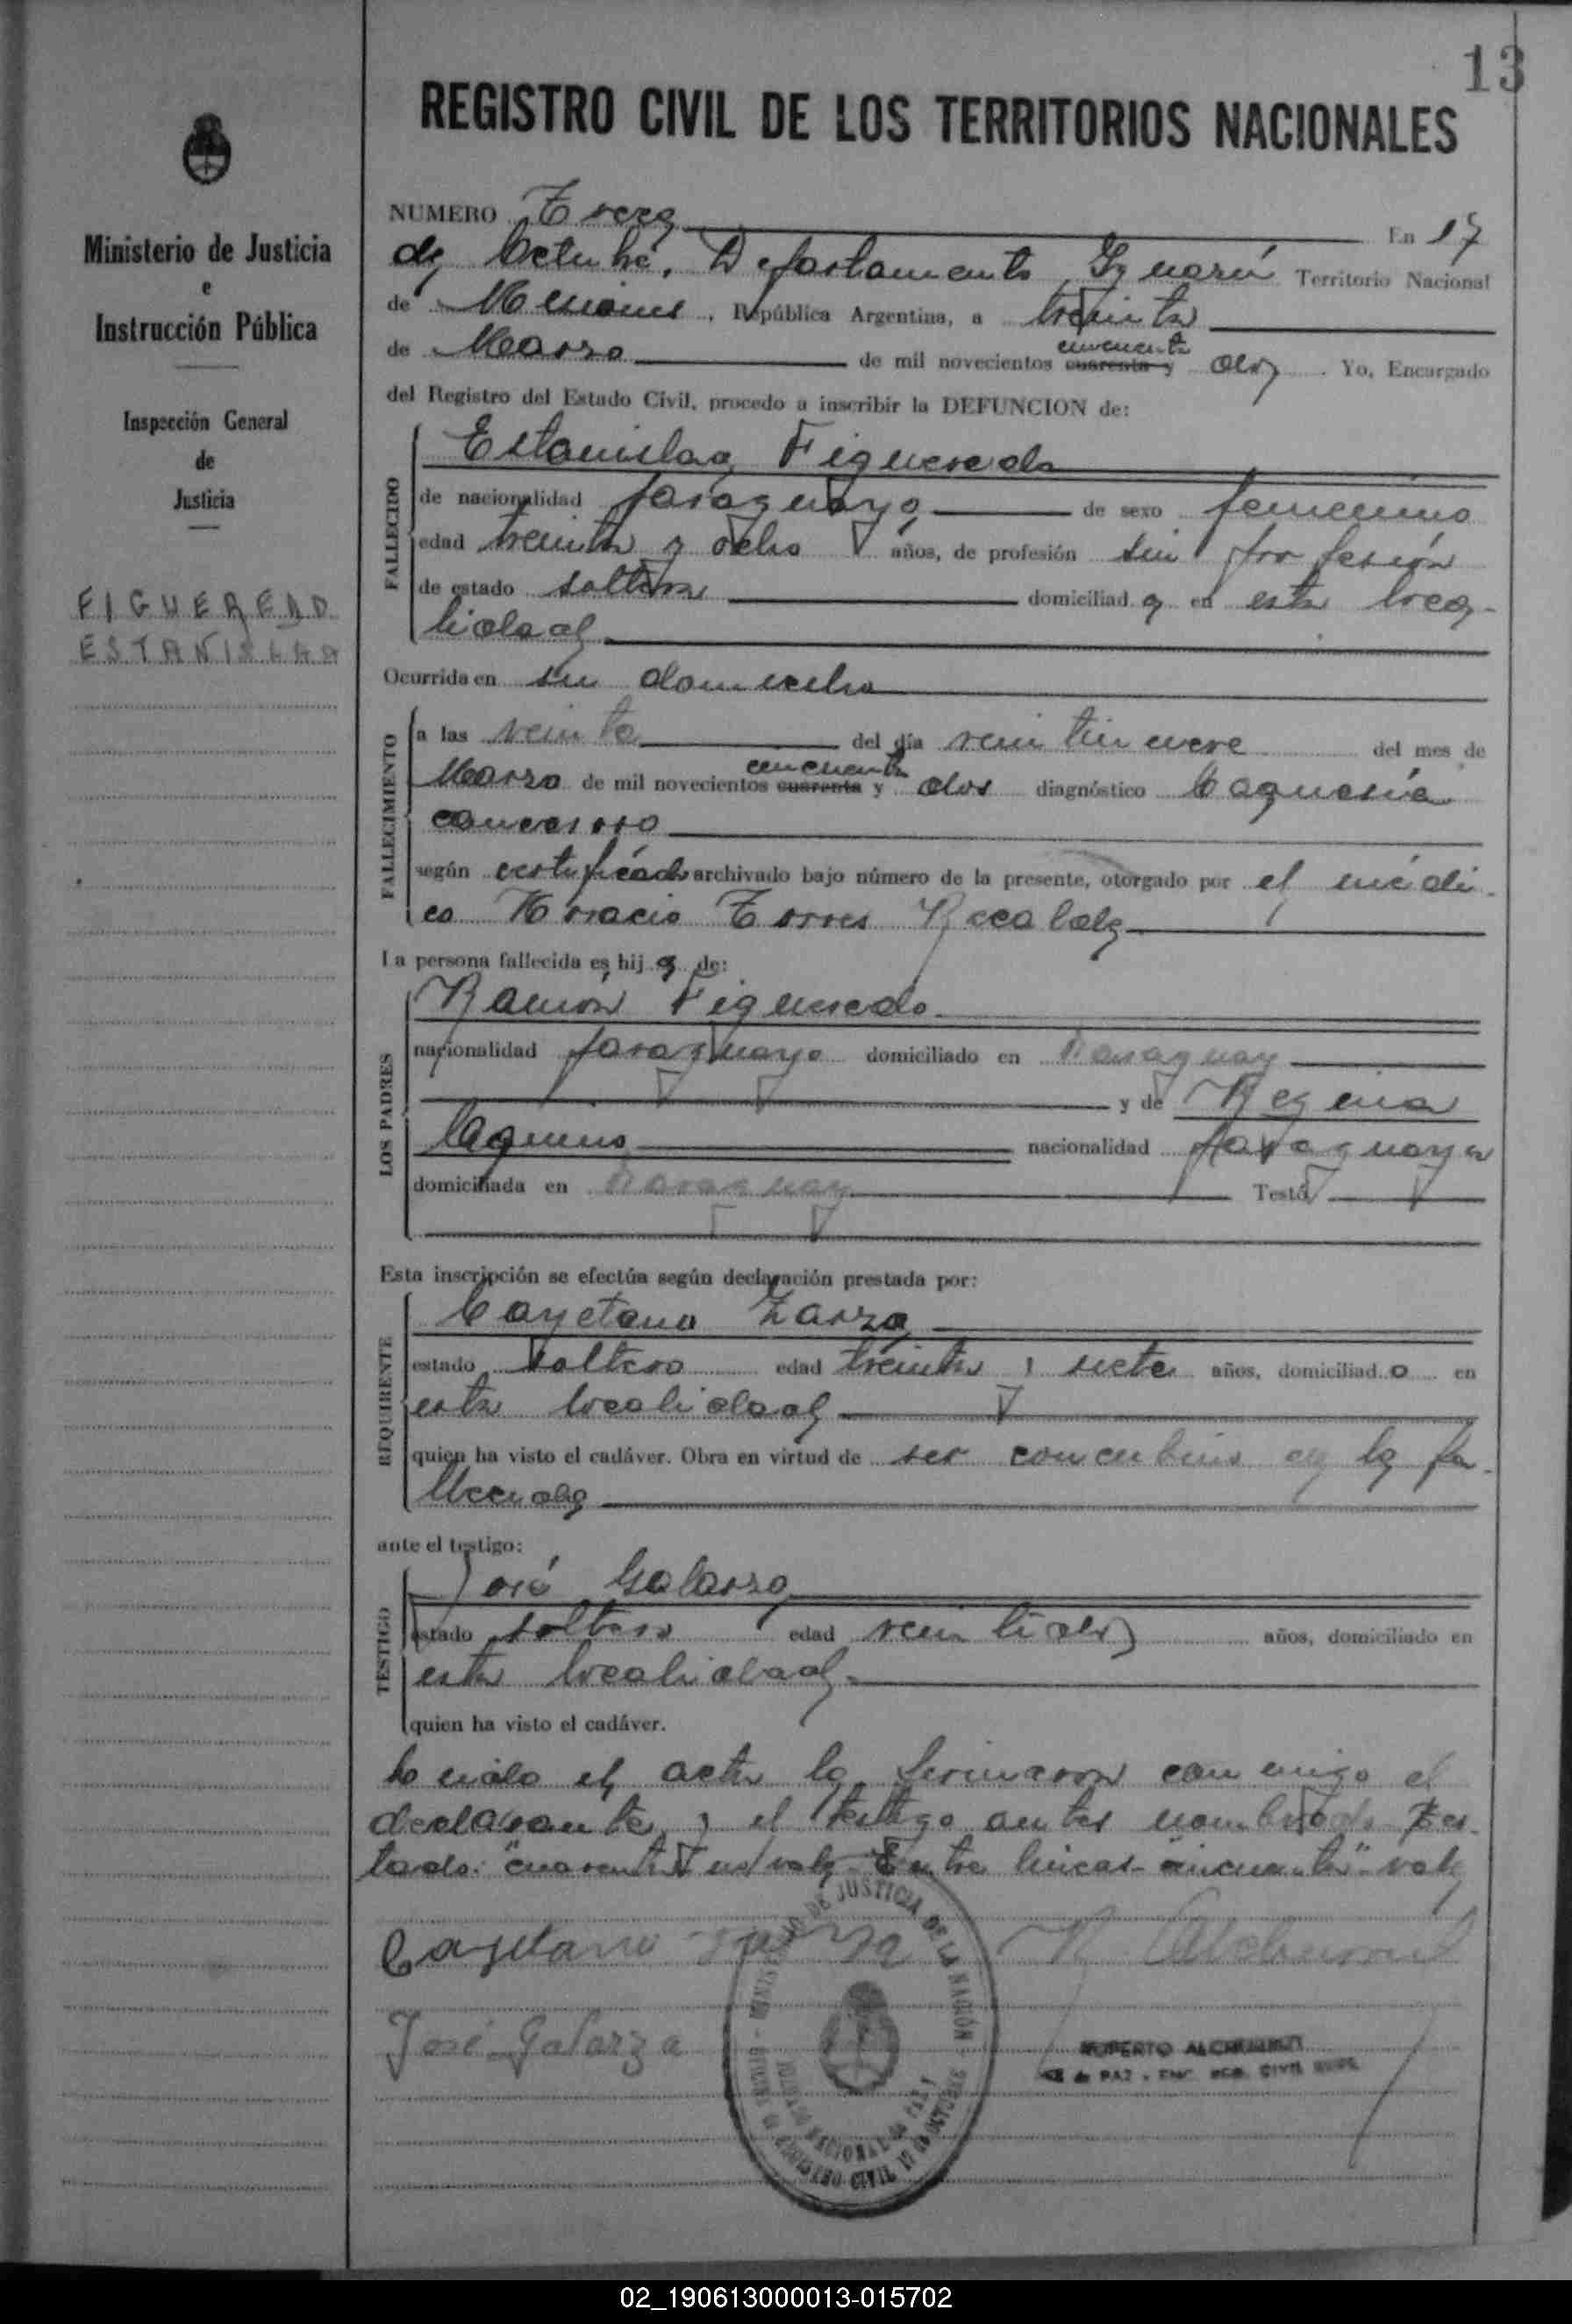 13
REGISTRO CIVIL DE LOS TERRITORIOS NACIONALES
Ministerio de Justicia
e
Instrucción Pública
Inspección General
de
Justicia
FIGUEREDO
ESTANISLAA
NUMERO Trece En 17
de Octubre, Departamento Iguazú Territorio Nacional
de Misiones, República Argentina, a treinta
cincuenta
de Marzo de mil novecientos cuarenta y dos. Yo, Encargado
del Registro del Estado Civil, procedo a inscribir la DEFUNCION de:
FALLECIDO
Estanislaa Figueredo
de nacionalidad paraguaya de sexo femenino
edad treinta y ocho años, de profesión sin profesión
de estado soltera domiciliada en esta loca-
lidad
Ocurrida en su domicilio
FALLECIMIENTO
a las veinte del día veintinueve del mes de
cincuenta
Marzo de mil novecientos cuarenta y dos diagnóstico Caquexia
cancerosa
según certificado archivado bajo número de la presente, otorgado por el médi-
co Horacio Torres Recalde
La persona fallecida es hija de:
LOS PADRES
Ramón Figueredo
nacionalidad paraguayo domiciliado en Paraguay
y de Regina
nacionalidad paraguaya
domiciliada en Paraguay Testó
Esta inscripción se efectúa según declaración prestada por:
REQUIRENTE
Cayetano Zarza
estado soltero edad treinta y siete años, domiciliado en
esta localidad
quien ha visto el cadáver. Obra en virtud de ser concubino de la fa-
llecida
ante el testigo:
TESTIGO
José Galarza
estado soltero edad veintidos años, domiciliado en
esta localidad
quien ha visto el cadáver.
Leida el acta la firmaron conmigo el
declarante y el testigo antes nombrado Tes-
tado: "cuarenta" no vale Entre lineas "cincuenta" vale
Cayetano Zarza
José Galarza
MINISTERIO DE JUSTICIA DE LA NACIÓN
JUZGADO NACIONAL DE PAZ
OFICINA DE REGISTRO CIVIL 17 DE OCTUBRE
RUPERTO
de PAZ - ENC. REG. CIVIL
02_190613000013-015702